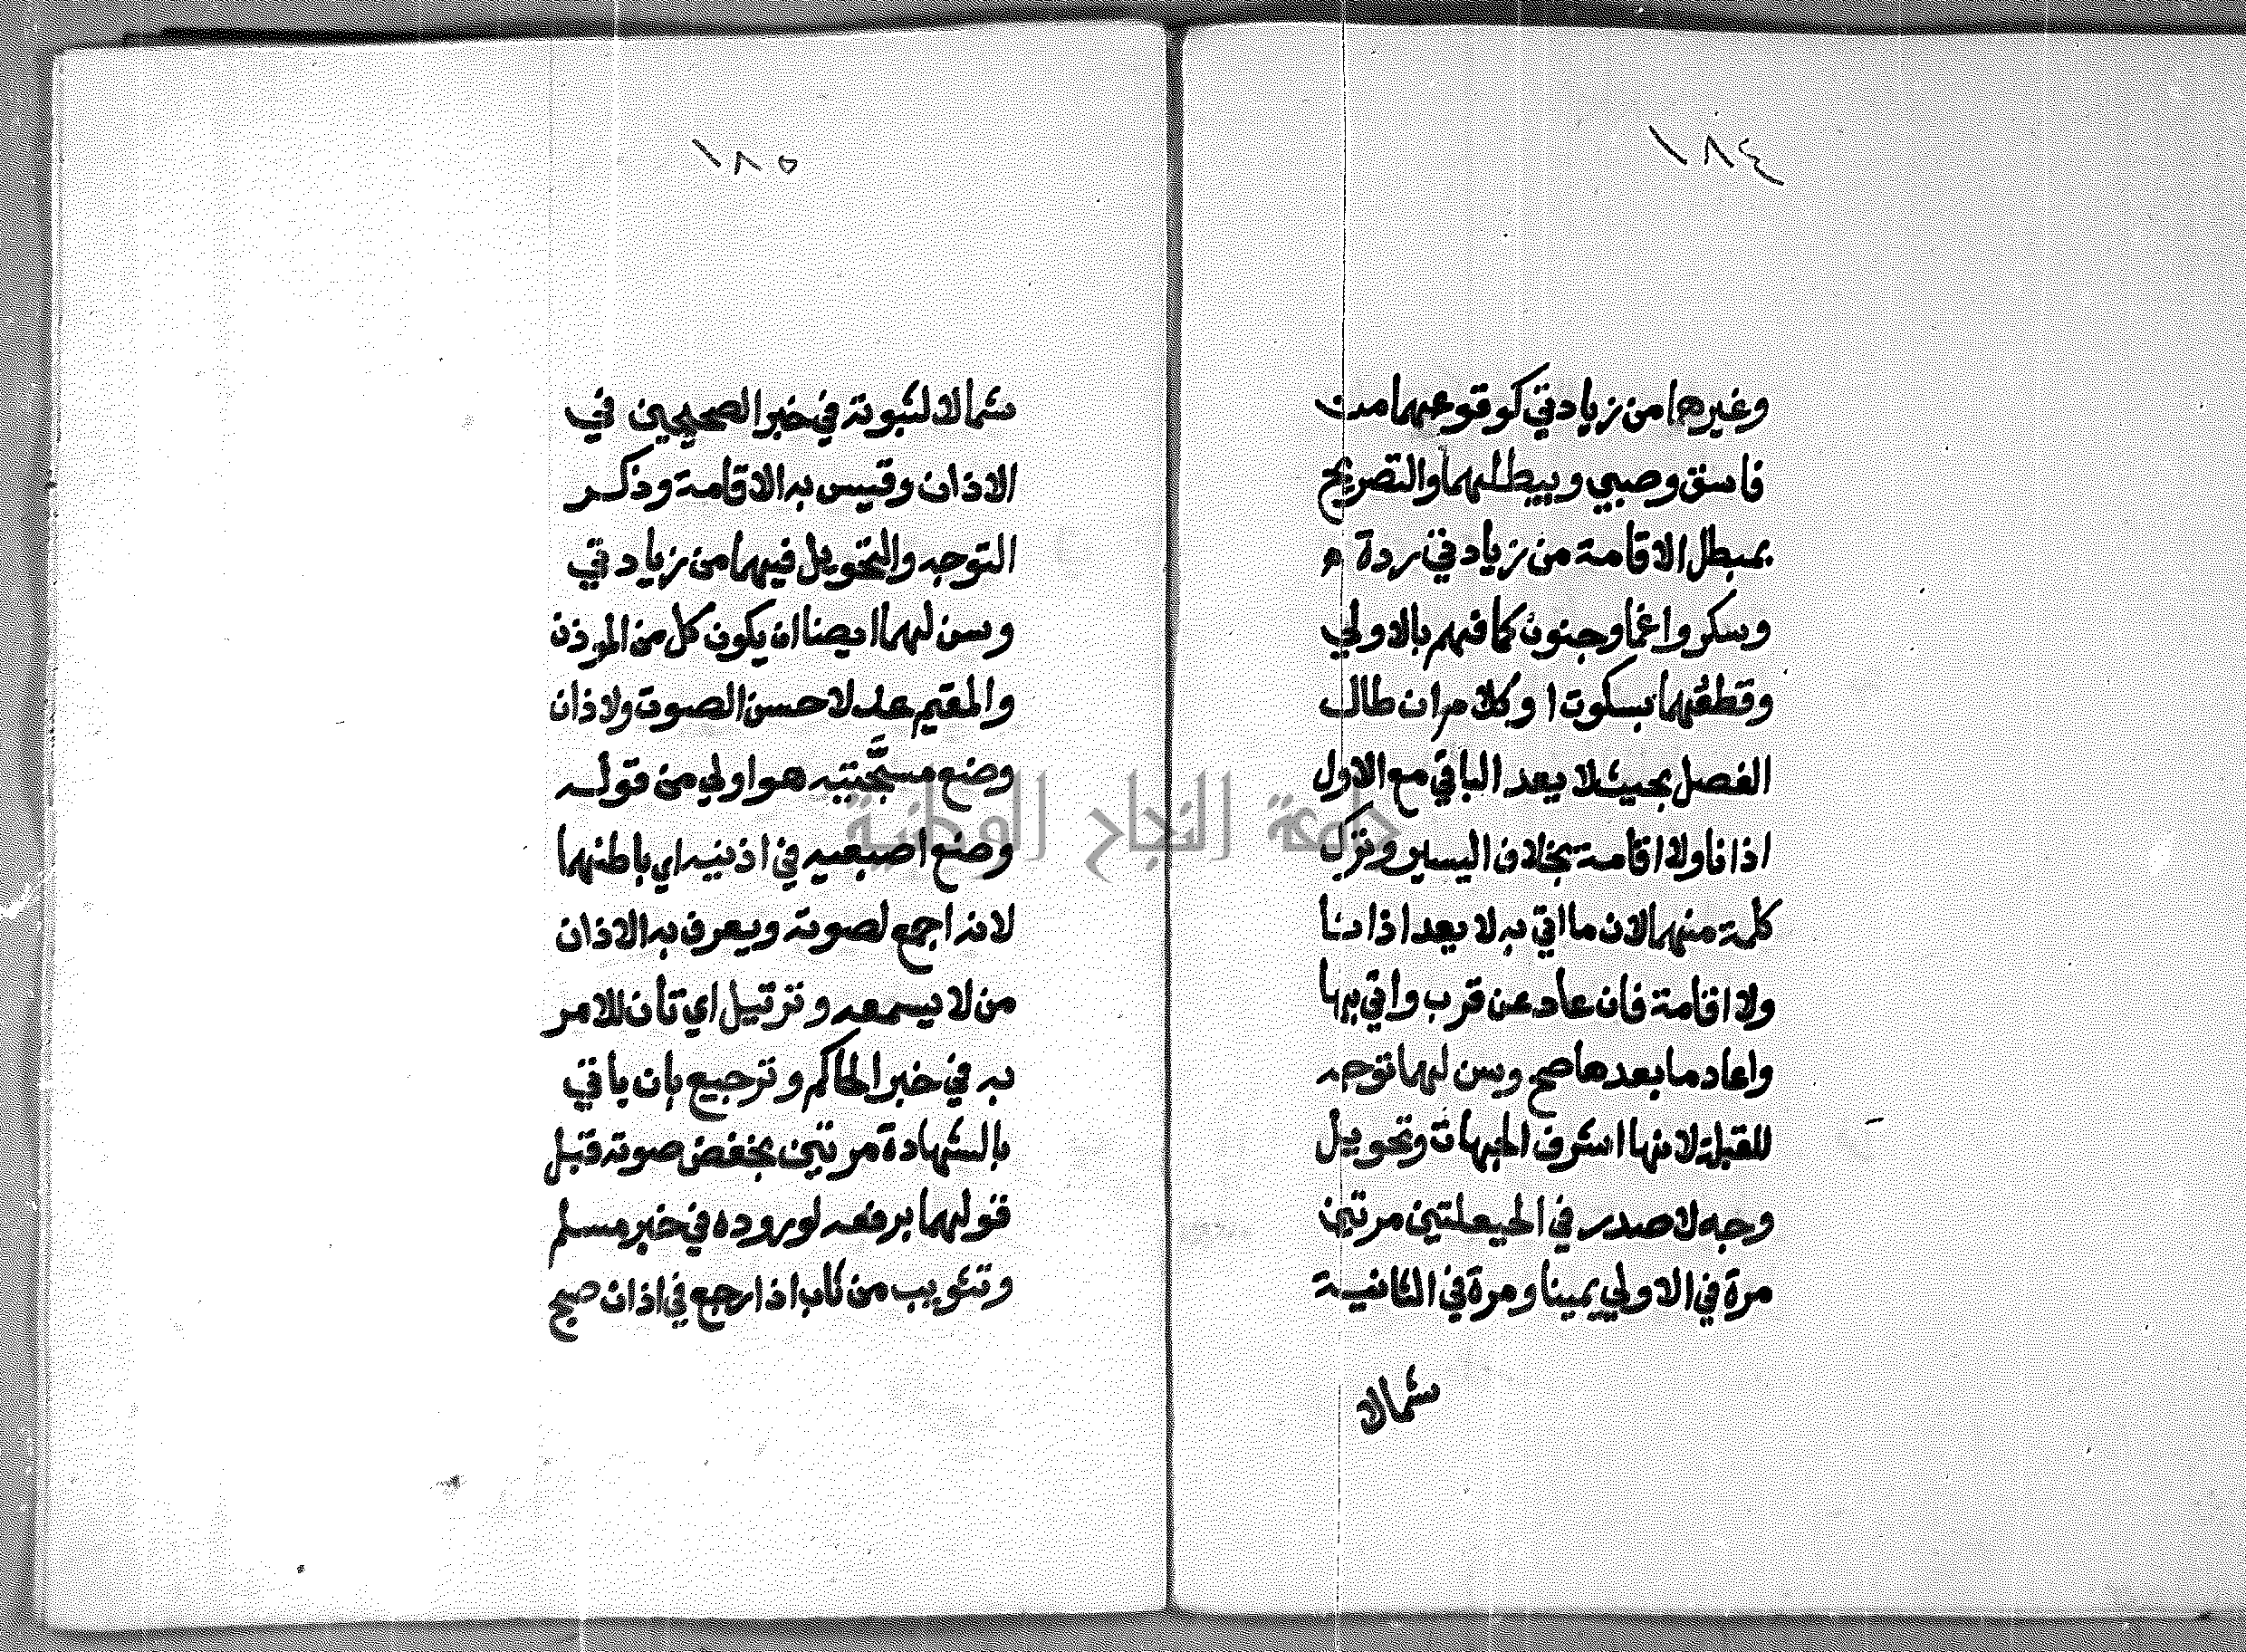 ١٨٤
وغيرها من زيادتي كوقوعهما من
فاسق وصبي ويبطلهما والتصريح
بمبطل الاقامة من زيادتي ردة
وسكر واغما وجنون كما فهم بالاولي
وقطعهما بسكوت او كلام ان طال
الفصل بحيث لا يعد الباقي مع الاول
اذانا ولا اقامة بخلاف اليسير وترك
كلمة منهما لان ما اتي به لا يعد اذانا
ولا اقامة فان عاد عن قرب واتي بها
واعاد ما بعدها صح وسن لهما توجه
للقبلة لانها اشرف الجهات وتحويل
وجه لا صدر في الحيعلتين مرتين
مرة في الاولي يمينا ومرة في الثانية
شمالا
١٨٥
شمالا لثبوته في خبر الصحيحين في
الاذان وقيس به الاقامة وذكر
التوجه والتحويل فيهما من زيادتي
وسن لهما ايضا ان يكون كل من الموذن
والمقيم عدلا حسن الصوت ولاذان
وضع مسبحتيه هو اولي من قوله
وضع اصبعيه في اذنيه اي باطنهما
لانه اجمع لصوته ويعرف به الاذان
من لا يسمعه وترتيل اي تأن للامر
به في خبر الحاكم وترجيع بان ياتي
بالشهادة مرتين بخفض صوته قبل
قولهما برفعه لوروده في خبر مسلم
وتثويب من ثاب اذا رجع في اذان صبح
جامعة النجاح الوطنية